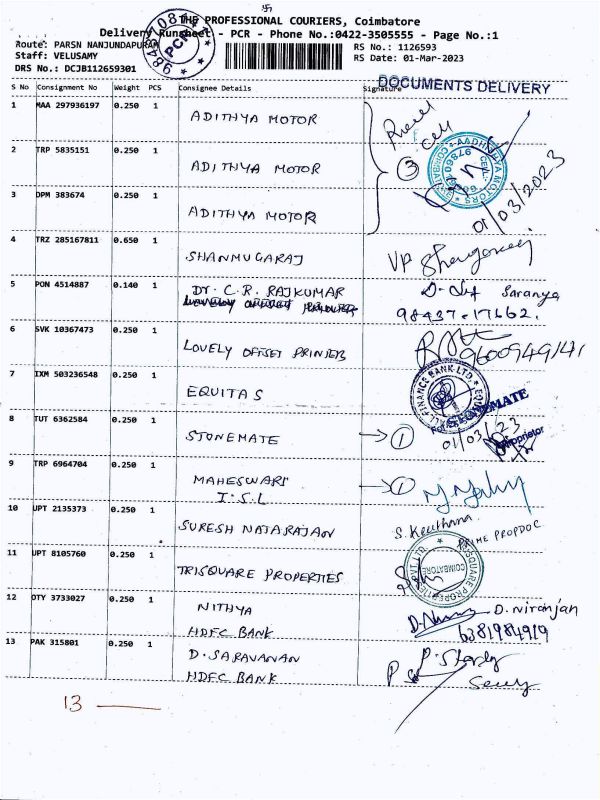 卐
THE PROFESSIONAL COURIERS, Coimbatore
Delivery Runsheet - PCR - Phone No.:0422-3505555 - Page No.:1
Route: PARSN NANJUNDAPURAM
RS No.: 1126593
Staff: VELUSAMY
RS Date: 01-Mar-2023
DRS No.: DCJB112659301
PCR
DOCUMENTS DELIVERY
S No Consignment No Weight PCS Consignee Details Signature
1 MAA 297936197 0.250 1 ADITHYA MOTOR
2 TRP 5835151 0.250 1 ADITHYA MOTOR
3
3 DPM 383674 0.250 1 ADITHYA MOTOR
01/03/2023
4 TRZ 285167811 0.650 1 SHANMUGARAJ
VP
5 PON 4514887 0.140 1 Dr. C.R. RAJKUMAR
Saranya
98437-17662.
6 SVK 10367473 0.250 1 LOVELY OFFSET PRINTERS
9600949141
7 IXM 503236548 0.250 1 EQUITAS
8 TUT 6362584 0.250 1 STONEMATE → 1
For STONEMATE
01/03/23
Proprietor
9 TRP 6964704 0.250 1 MAHESWARI → 1
I.S.L
10 UPT 2135373 0.250 1 SURESH NATARAJAN
S. Keerthana
PRIME PROPDOC
11 UPT 8105760 0.250 1 TRISQUARE PROPERTIES
COIMBATORE
12 OTY 3733027 0.250 1 NITHYA
HDFC BANK
D. Niranjan
6381984919
13 PAK 315801 0.250 1 D. SARAVANAN
HDFC BANK
13